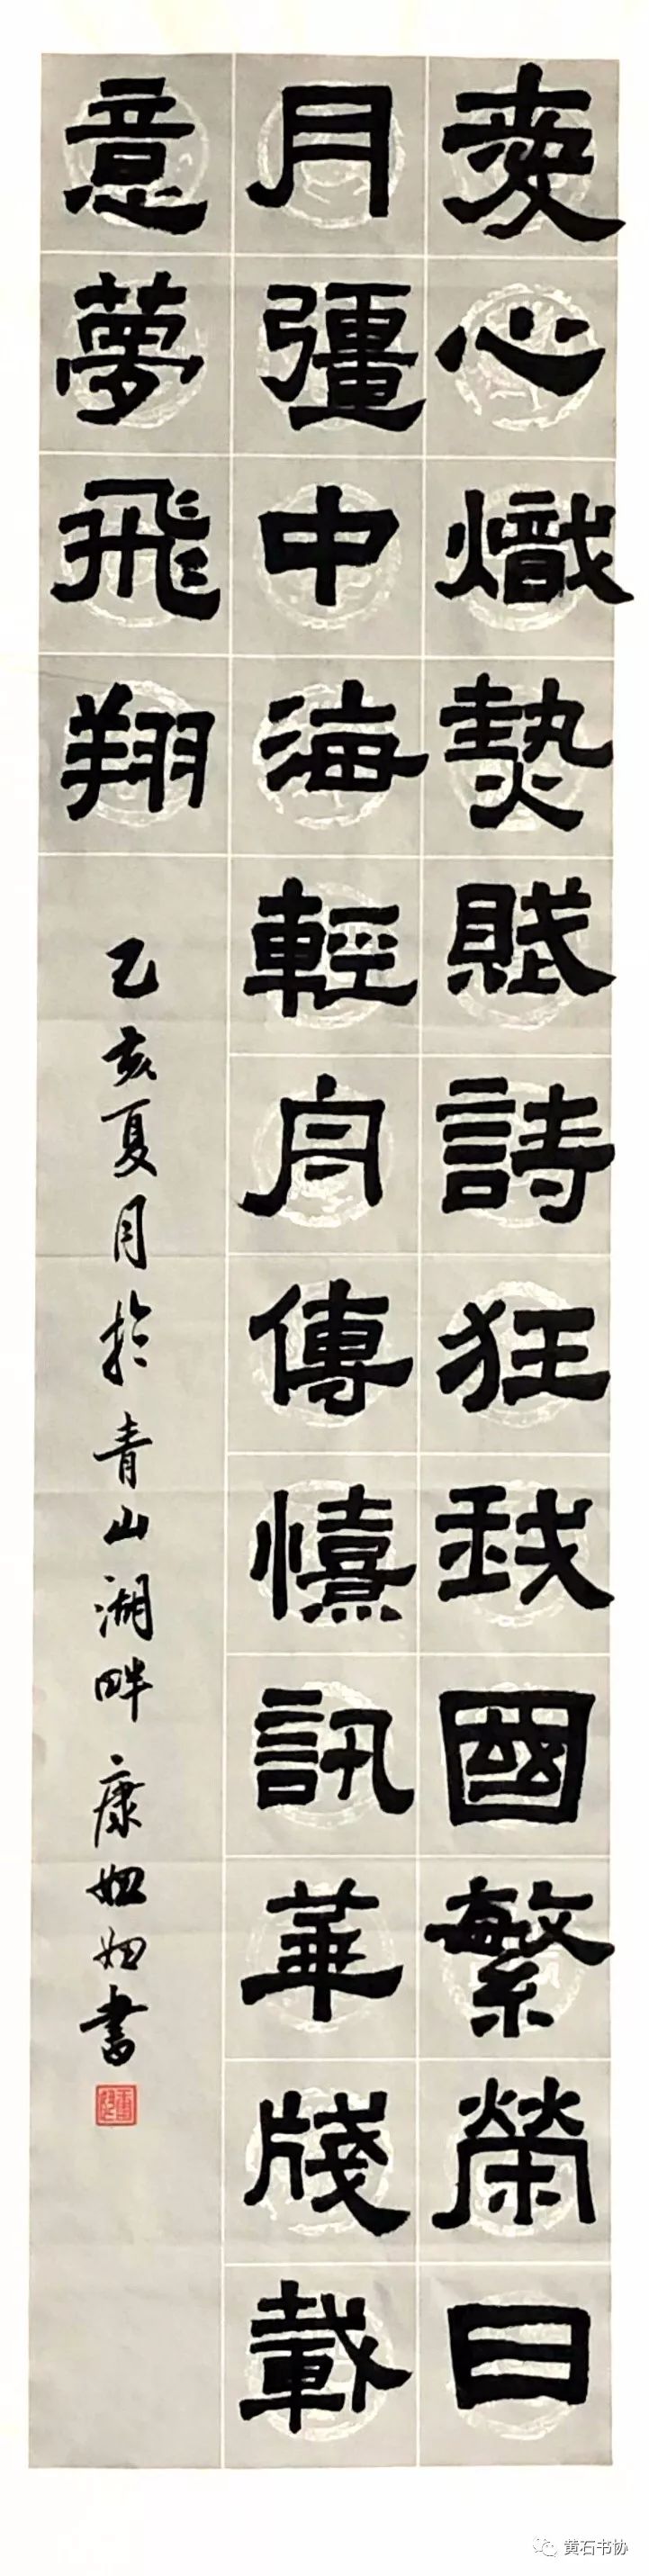 爱心熾熱賦詩狂我國繁榮日
月彊中海輕舟傳憘訊華牋載
意夢飛翔
乙亥夏月於青山湖畔康妞妞書
黄石书协